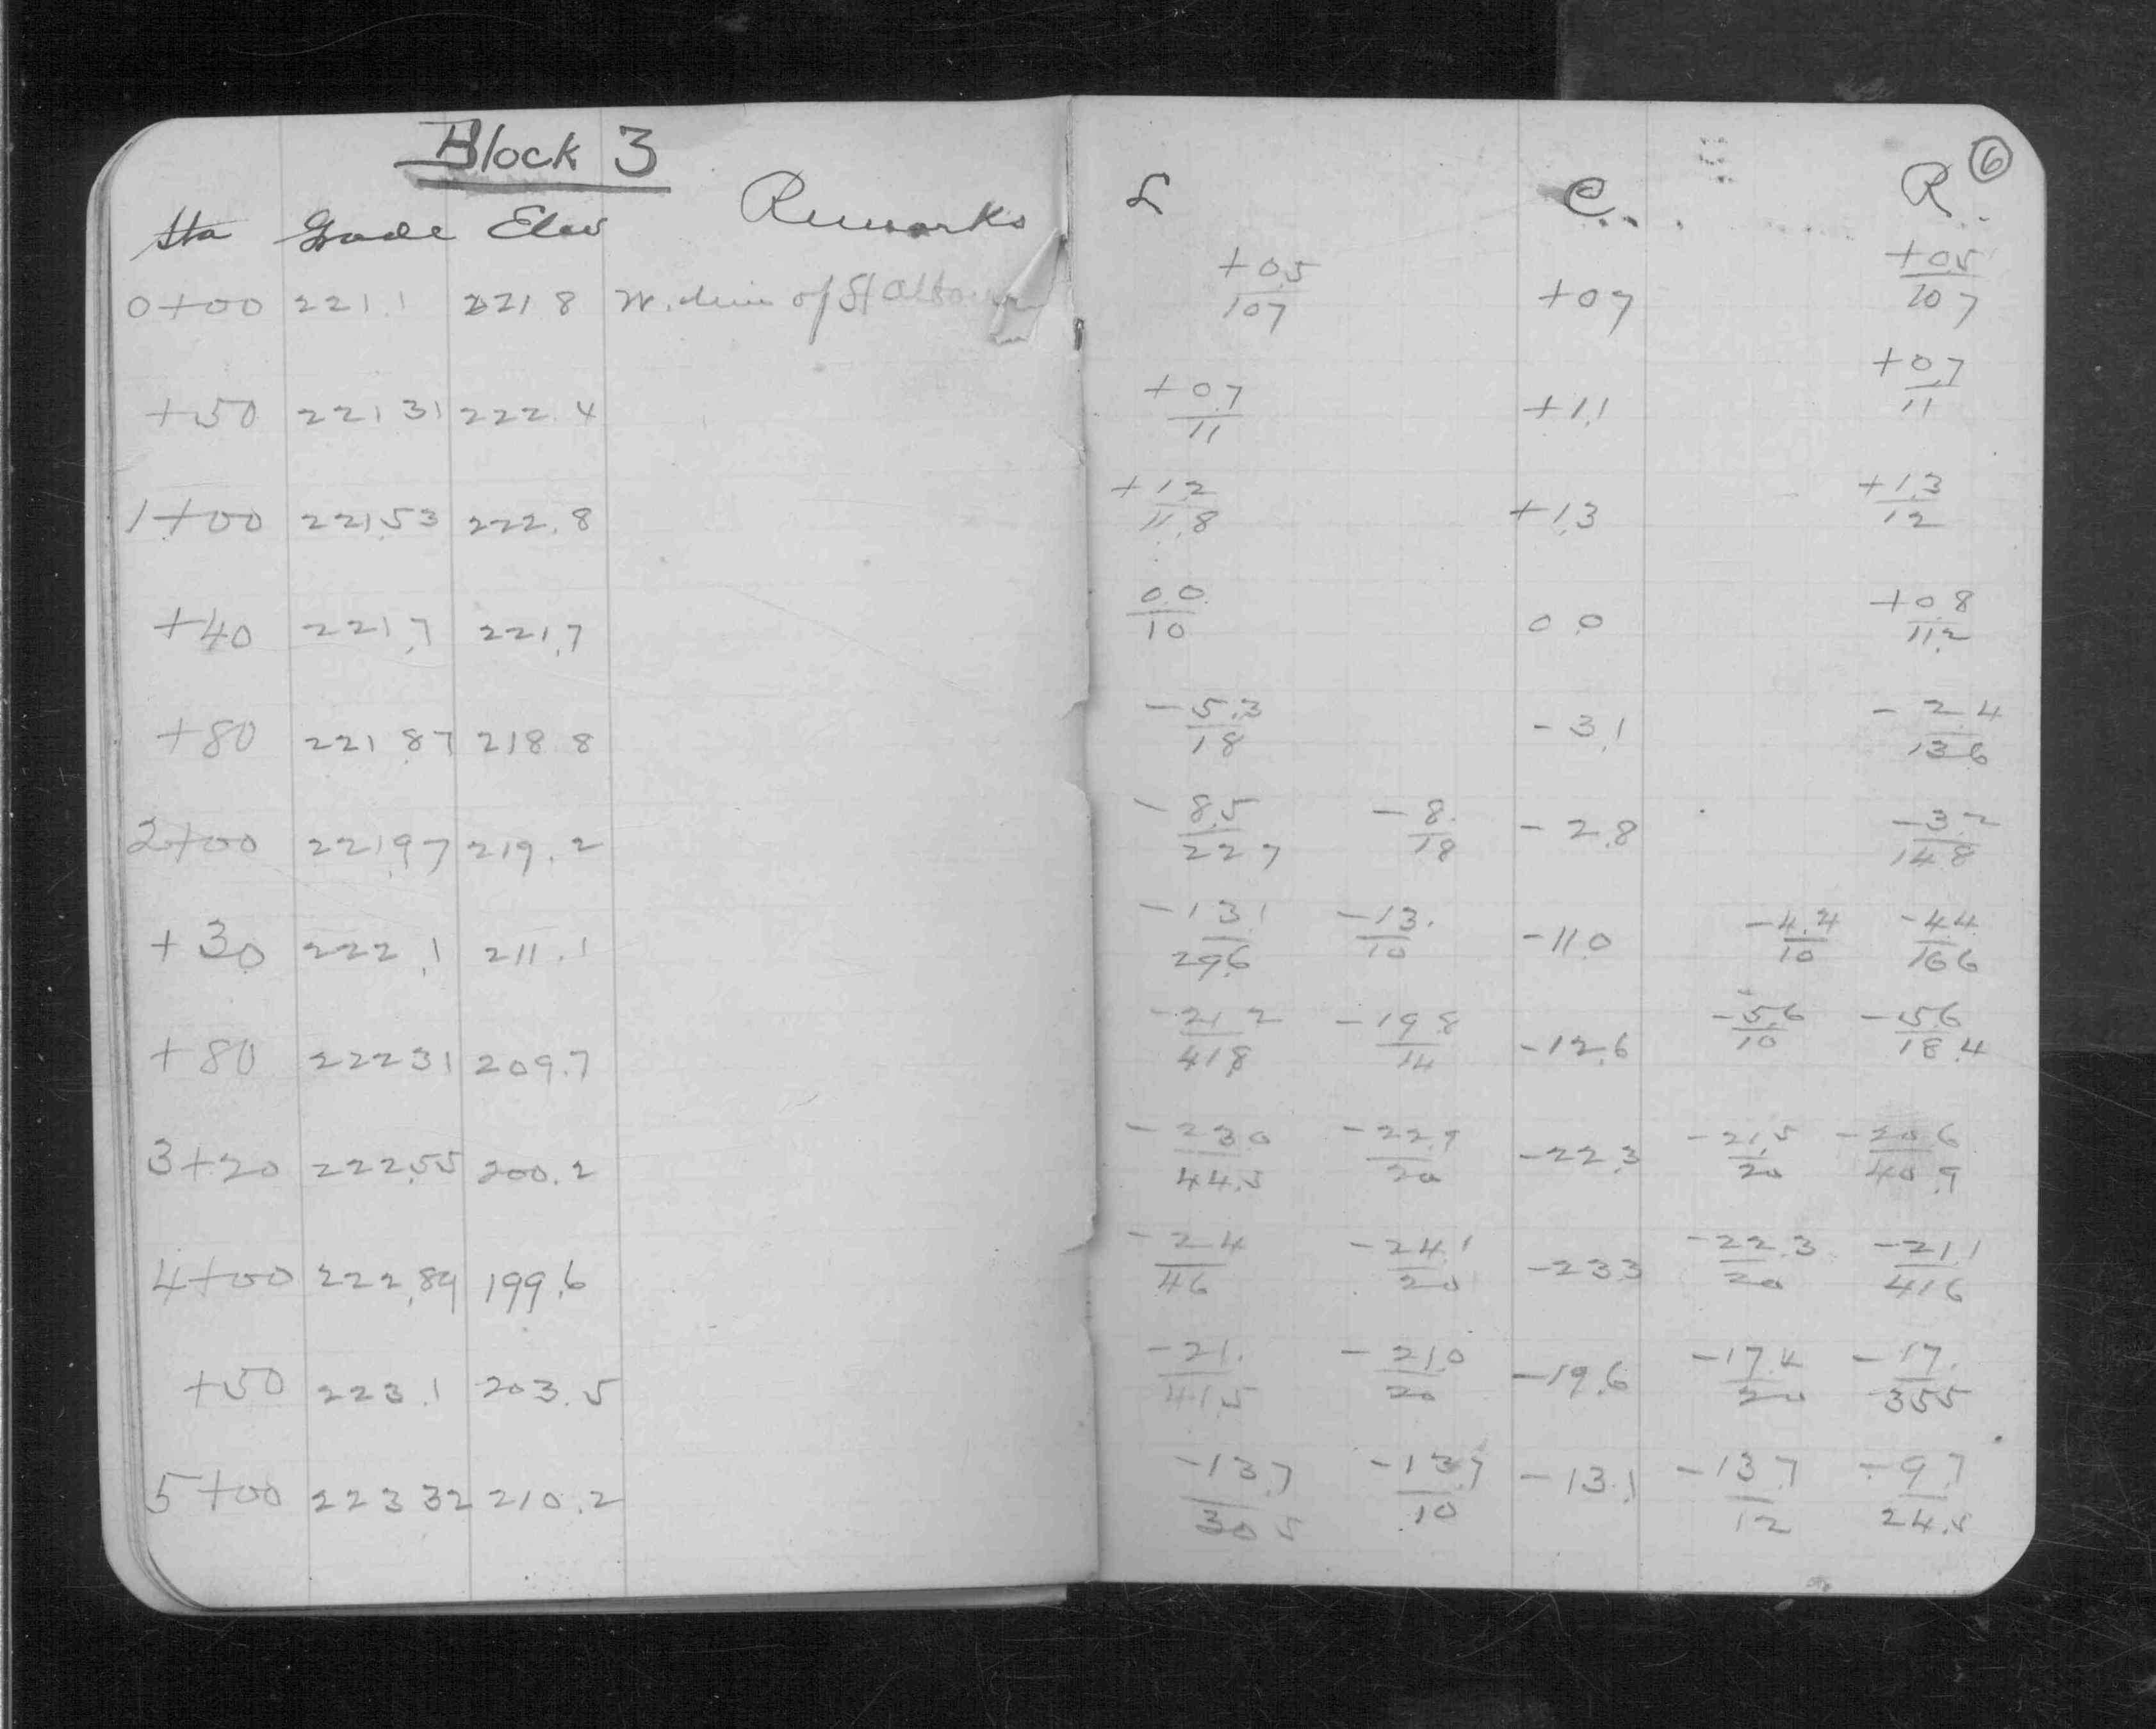 Block 3
Sta Grade Elev Remarks L C. R 6
+0.5 +0.5
0+00 221.1 221.8 W. line of St +0.7
10.7 10.7
+0.7 +0.7
+50 221.31 222.4 +1.1
11 11
+1.2 +1.3
1+00 221.53 222.8 +1.3
11.8 12
0.0 +0.8
+40 221.7 221.7 0.0
10 11.2
-5.3 -2.4
+80 221.87 218.8 -3.1
18 13.6
-8.5 -8. -3.2
2+00 221.97 219.2 -2.8
22.7 18 14.8
-13.1 -13. -4.4 -4.4
+30 222.1 211.1 -11.0
29.6 10 10 16.6
-21.2 -19.8 -5.6 -5.6
+80 222.31 209.7 -12.6
41.8 14 10 18.4
-23.0 -22.9 -21.5 -20.6
3+20 222.55 200.2 -22.3
44.5 20 20 40.9
-24 -24.1 -22.3 -21.1
4+00 222.89 199.6 -23.3
46 20 20 41.6
-21. -21.0 -17.4 -17.
+50 223.1 203.5 -19.6
41.5 20 20 35.5
-13.7 -13.7 -13.7 -9.7
5+00 223.32 210.2 -13.1
30.5 10 12 24.5